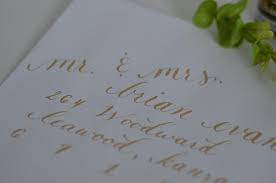 mr. & mrs.
brian evan
264 Woodward
Leawood, kansa
6